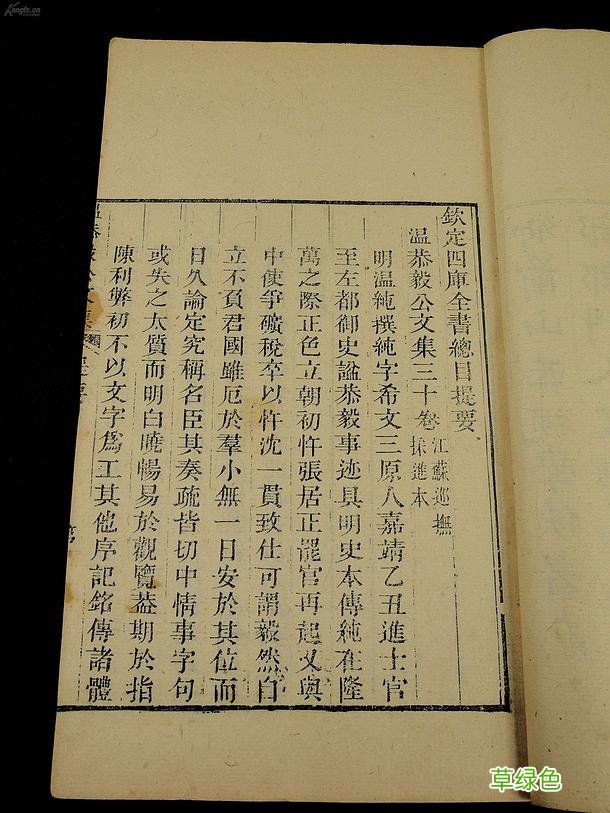 欽定四庫全書總目提要
溫恭毅公文集三十卷江蘇巡撫採進本
明溫純撰純字希文三原人嘉靖乙丑進士官
至左都御史諡恭毅事迹具明史本傳純在隆
萬之際正色立朝初忤張居正罷官再起又與
中使爭礦稅卒以忤沈一貫致仕可謂毅然自
立不負君國雖厄於羣小無一日安於其位而
日久論定究稱名臣其奏疏皆切中情事字句
或失之太質而明白曉暢易於觀覽葢期於指
陳利弊初不以文字爲工其他序記銘傳諸體
草绿色
Kongfz.cn